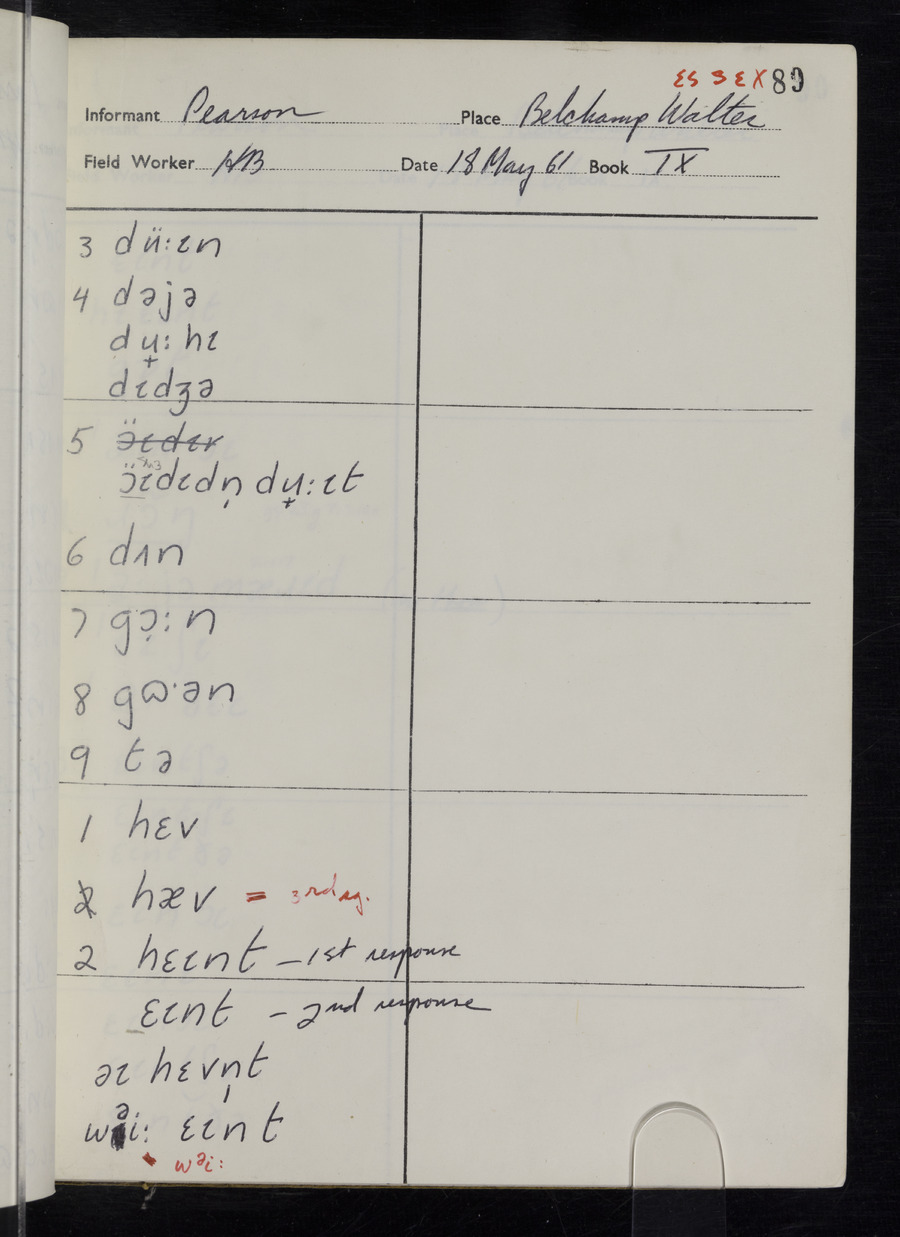 ESSEX 89
Informant Pearson Place Belchamp Walter
Field Worker HB Date 18 May 61 Book IX
3 dü:ɪn
4 dəjə
dʉ̟: hɪ
dɪdʒə
5 ɔ̈ɪdɪr
ɔ̈ɪdɪdn̩ dʉ̟:ɪt
6 dʌn
7 gɔ̣:n
8 gɷ·ən
9 tə
1 hɛv
2 hæv = 3rd sg.
2 hɛɪnt – 1st response
ɛɪnt – 2nd response
əɪ hɛvn̩t
wəi: ɛɪnt
wəi: